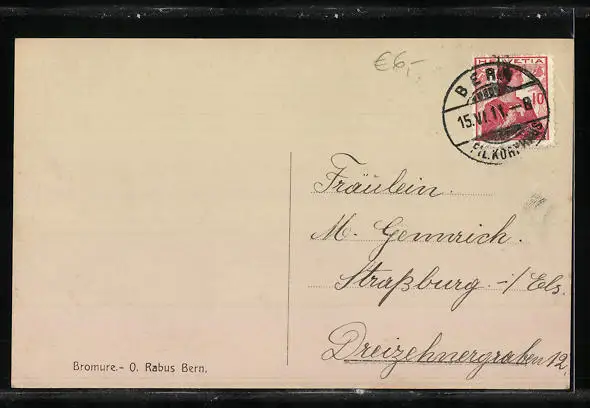 €6,-
HELVETIA
10
BERN
15.VI.11.-8
FIL.KORNHAUS
Fräulein.
M. Gemrich.
Straßburg.-i/Els.
Dreizehnergraben 12.
Bromure.- O. Rabus Bern.